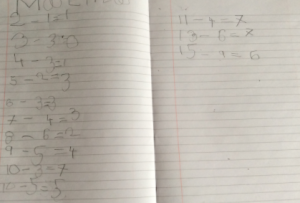 2 - 1=1
3 - 3=0
4 - 3=1
5 - 2=3
6 - 3=3
7 - 4=3
8 - 6=2
9 - 5=4
10 - 3=7
10 - 5=5
11 - 4=7
13 - 6=7